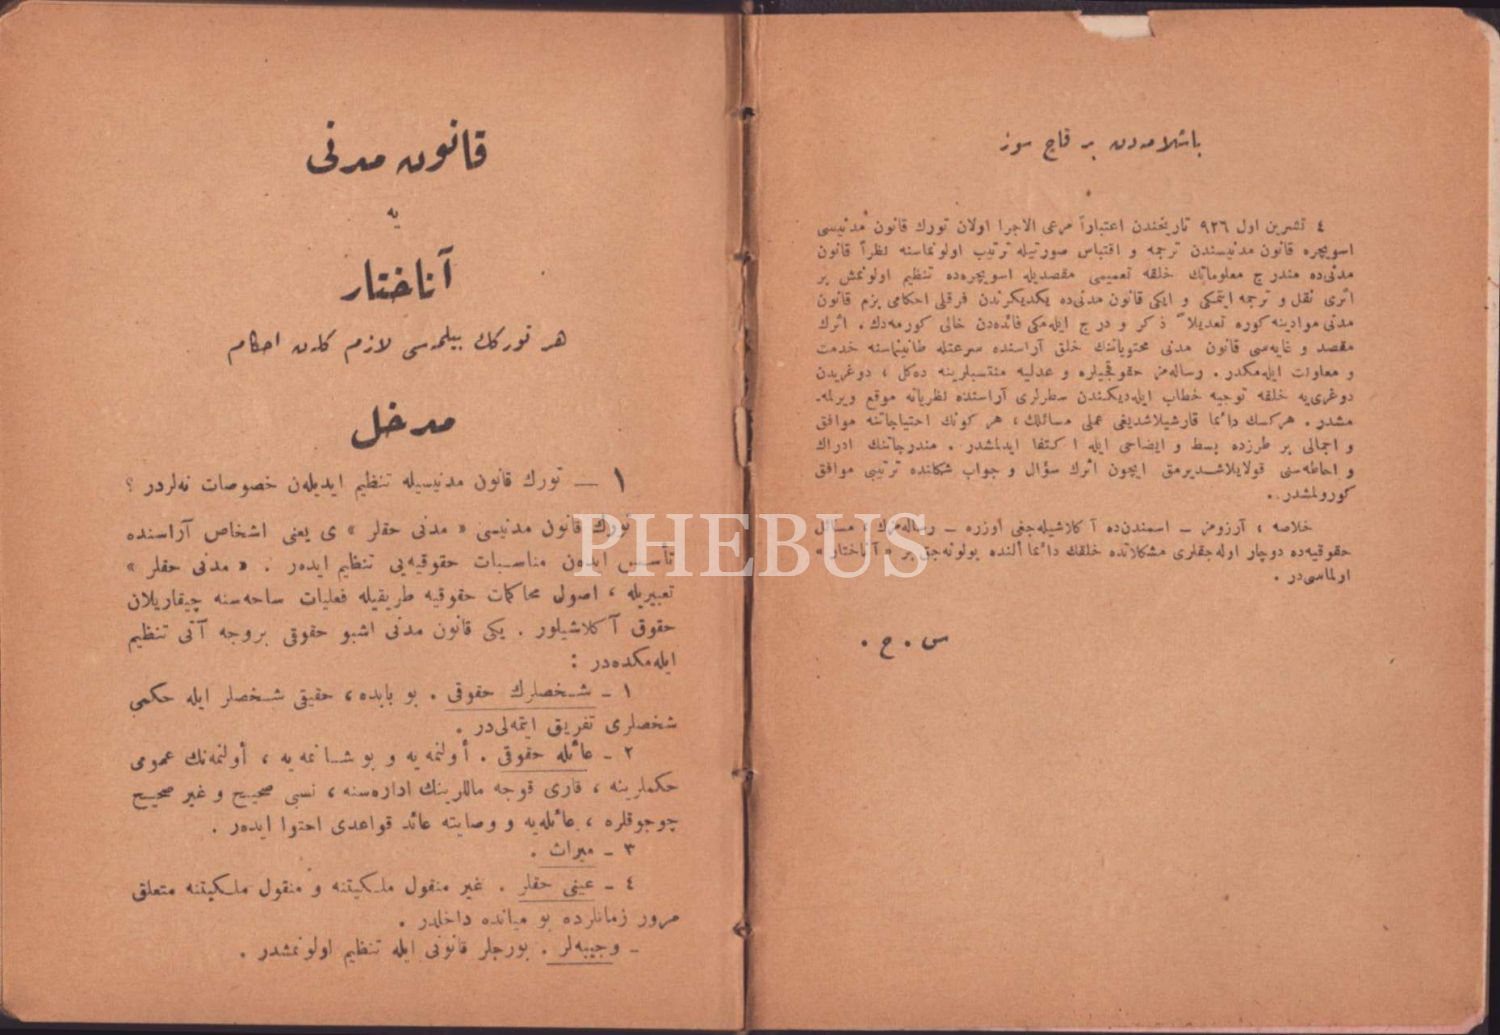 باشلامه‌دن بر قاچ سوز
٤ تشرین اول ٩٢٦ تاریخندن اعتباراً مرعی الاجرا اولان تورك قانون مدنیسی
اسویچره قانون مدنیسندن ترجمه و اقتباس صورتیله ترتیب اولونماسنه نظراً قانون
مدنی‌ده مندرج معلوماتك خلقه تعمیمی مقصدیله اسویچره‌ده تنظیم اولونمش بر
اثری نقل و ترجمه ایتمكی و ایكی قانون مدنی‌ده یكدیكرندن فرقلی احكامی بزم قانون
مدنی موادینه كوره تعدیلاً ذكر و درج ایله‌مكی فائده‌دن خالی كورمه‌دك . اثرك
مقصد و غایه‌سی قانون مدنی محتویاتنك خلق آراسنده سرعتله طانینماسنه خدمت
و معاونت ایله‌مكدر . رساله‌مز حقوقجیلره و عدلیه منتسبلرینه ده‌كل ، دوغریدن
دوغری‌یه خلقه توجیه خطاب ایله‌دیكندن سطرلری آراسنده نظریاته موقع ویرلمه‌ـ
مشدر . هركسك دائما قارشیلاشدیغی عملی مسائلك ، هر كونك احتیاجاتنه موافق
و اجمالی بر طرزده بسط و ایضاحی ایله اكتفا ایدلمشدر . مندرجاتنك ادراك
و احاطه‌سی قولایلاشدیرمق ایچون اثرك سؤال و جواب شكلنده ترتیبی موافق
كورولمشدر .
خلاصه ، آرزومز ـ اسمندن‌ده آكلاشیله‌جغی اوزره ـ رساله‌مزك ، مسائل
حقوقیه‌ده دوچار اوله‌جقلری مشكلاتده خلقك دائما ألنده بولونه‌جق بر « آناختار »
اولماسی‌در .
س . ح .
قانون مدنی
یه
آناختار
هر توركك بیلمه‌سی لازم كلن احكام
مدخل
١ — تورك قانون مدنیسیله تنظیم ایدیله‌ن خصوصات نه‌لردر ؟
تورك قانون مدنیسی « مدنی حقلر » ی یعنی اشخاص آراسنده
تأسس ایده‌ن مناسبات حقوقیه‌یی تنظیم ایده‌ر . « مدنی حقلر »
تعبیریله ، اصول محاكمات حقوقیه طریقیله فعلیات ساحه‌سنه چیقاریلان
حقوق آكلاشیلور . یكی قانون مدنی اشبو حقوقی بروجه آتی تنظیم
ایله‌مكده‌در :
١ ـ شخصلرك حقوقی . بو بابده ، حقیقی شخصلر ایله حكمی
شخصلری تفریق ایتمه‌لی‌در .
٢ ـ عائله حقوقی . أولنمه‌یه و بوشانمه‌یه ، أولنمه‌نك عمومی
حكملرینه ، قاری قوجه ماللرینك اداره‌سنه ، نسبی صحیح و غیر صحیح
چوجوقلره ، عائله‌یه و وصایته عائد قواعدی احتوا ایده‌ر .
٣ ـ میراث .
٤ ـ عینی حقلر . غیر منقول ملكیتنه و منقول ملكیتنه متعلق
مرور زمانلرده بو میانده داخلدر .
ـ وجیبه‌لر . بورجلر قانونی ایله تنظیم اولونمشدر .
PHEBUS